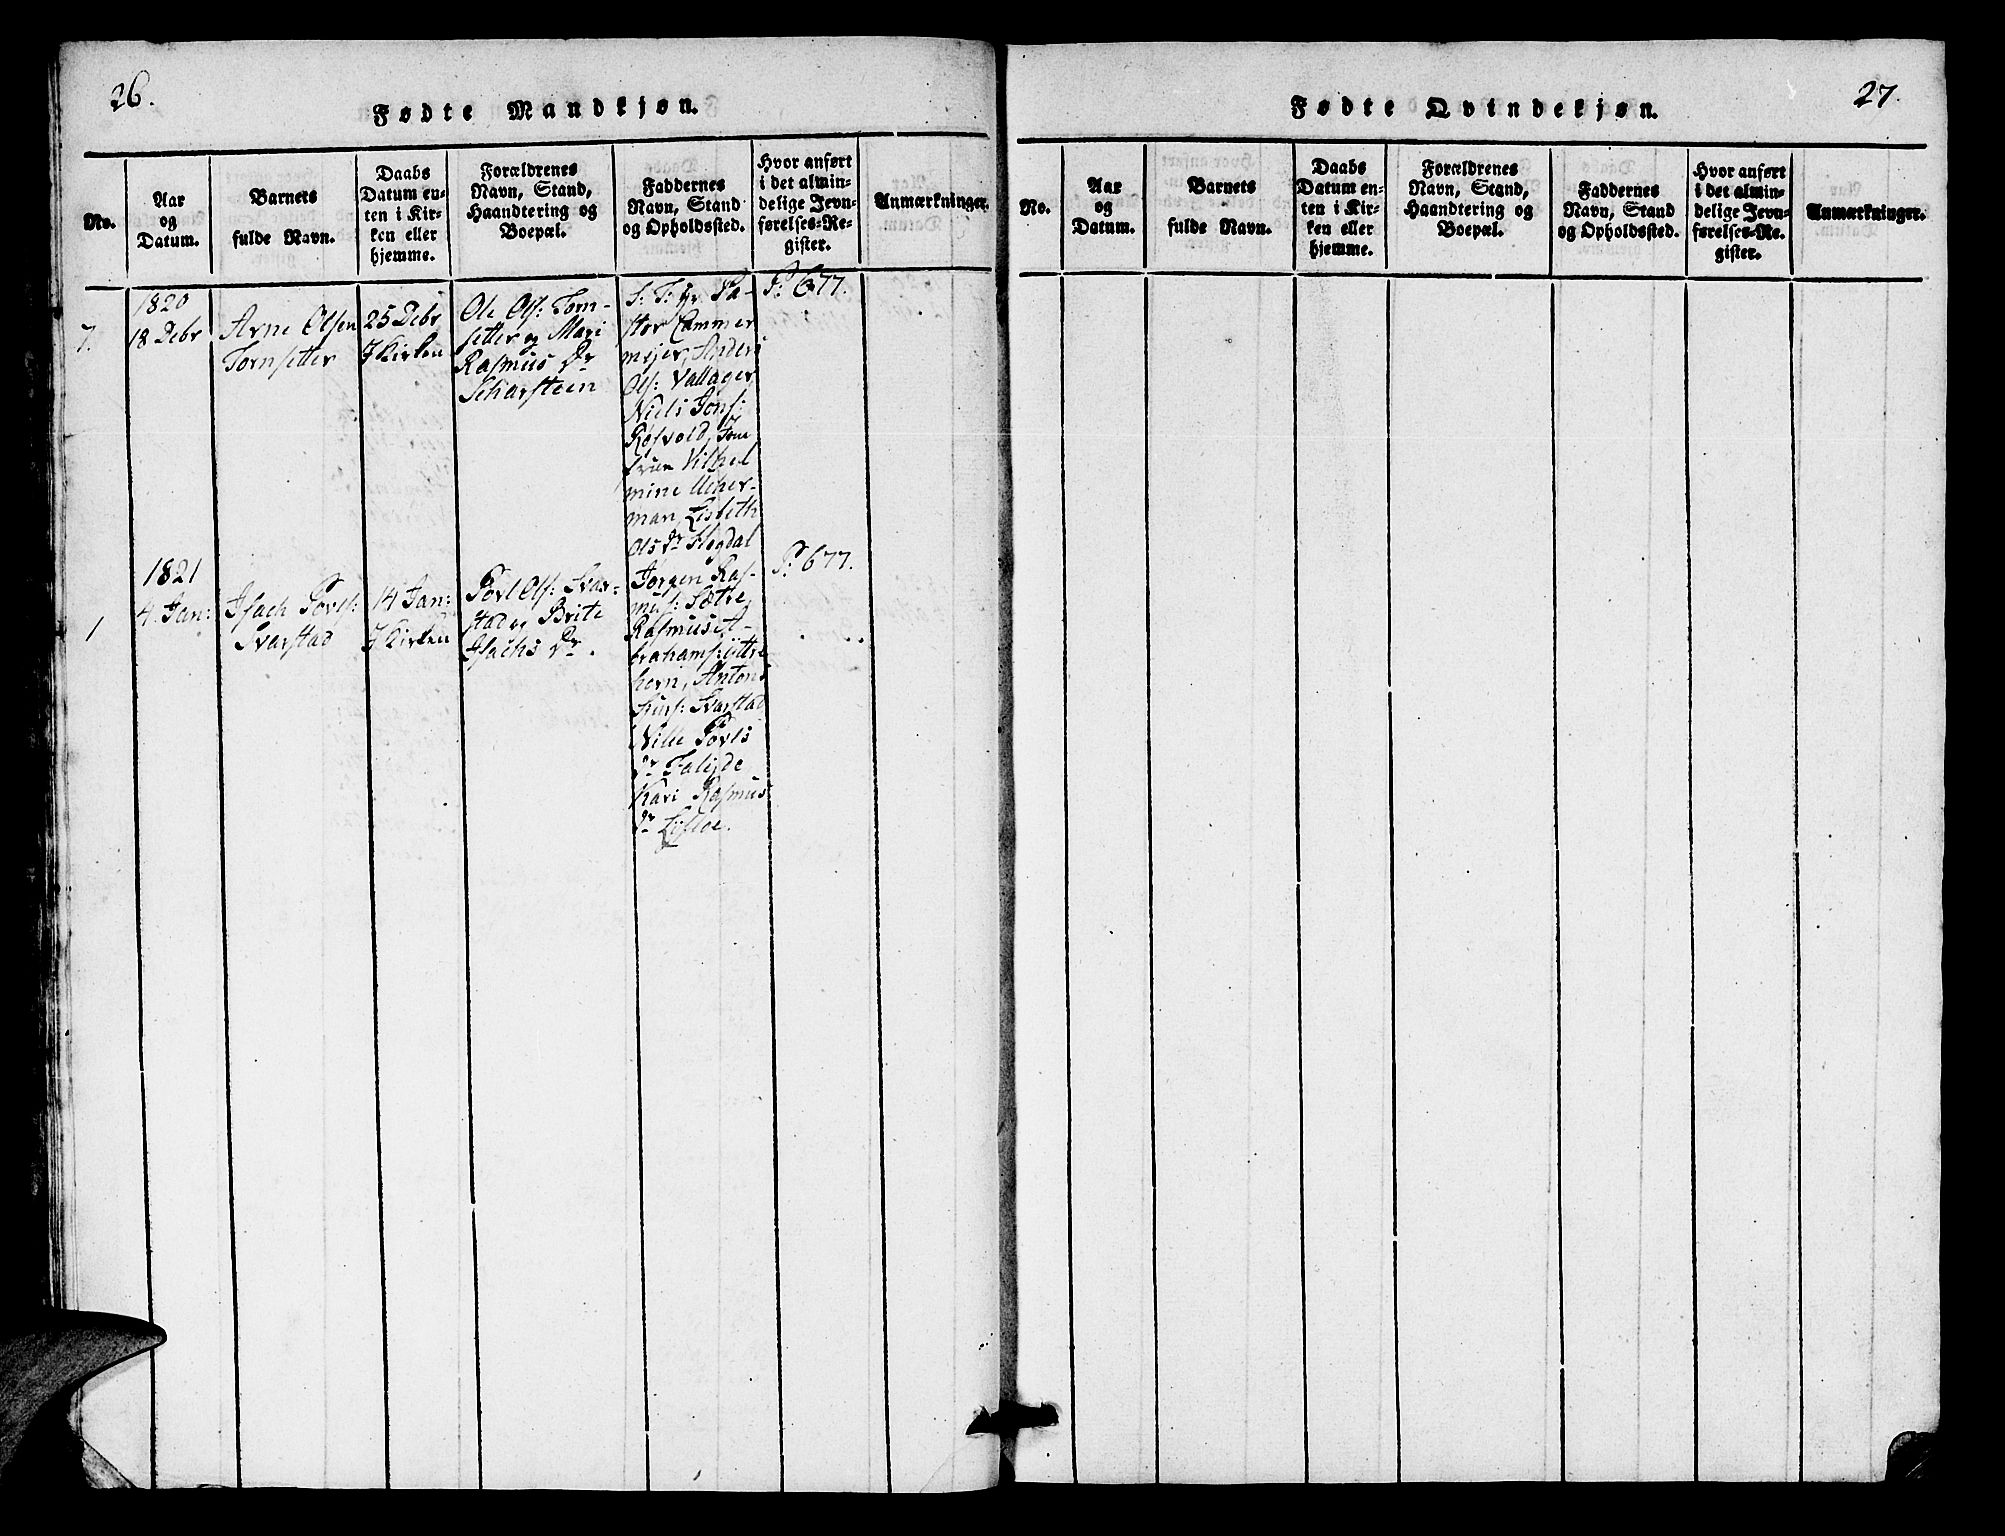 26.
Fødte Mandkjøn.
No.
Aar
og
Datum.
Barnets
fulde Navn.
Daabs
Datum en-
ten i Kir-
ken eller
hjemme.
Forældrenes
Navn, Stand,
Haandtering og
Boepæl.
Faddernes
Navn, Stand
og Opholdssted.
Hvor anført
i det almin-
delige Jevn-
førelses-Re-
gister.
Anmærkninger.
7.
1820
18 Debr
Arne Olsen
Tornsetter
25 Debr
J Kirken
Ole Ols: Torn-
setter og Mari
Rasmus Dr
Scharsteen
S: T: Hr. Pa-
stor Cammer
mejer, Anders
Ols: Vallager
Niels Jons:
Røsvold, Jom
frue Vilhel
mine Ucher-
man, Lisbeth
Ols Dr Flogdal
P: 677.
1
1821
4 Jan:
Isach Povls:
Svarstad
14 Jan:
J Kirken
Povl Ols: Svar-
stad og Brite
Isachs Dr.
Jørgen Ras-
mus: Sætre
Rasmus A-
brahams: Yttre
horn, Antons
Svarstad
Nille Povls
Dr Faleide
Kari Rasmus
Dr
P: 677.
27.
Fødte Qvindekjøn.
No.
Aar
og
Datum.
Barnets
fulde Navn.
Daabs
Datum en-
ten i Kir-
ken eller
hjemme.
Forældrenes
Navn, Stand,
Haandtering og
Boepæl.
Faddernes
Navn, Stand
og Opholdssted.
Hvor anført
i det almin-
delige Jevn-
førelses-Re-
gister.
Anmærkninger.